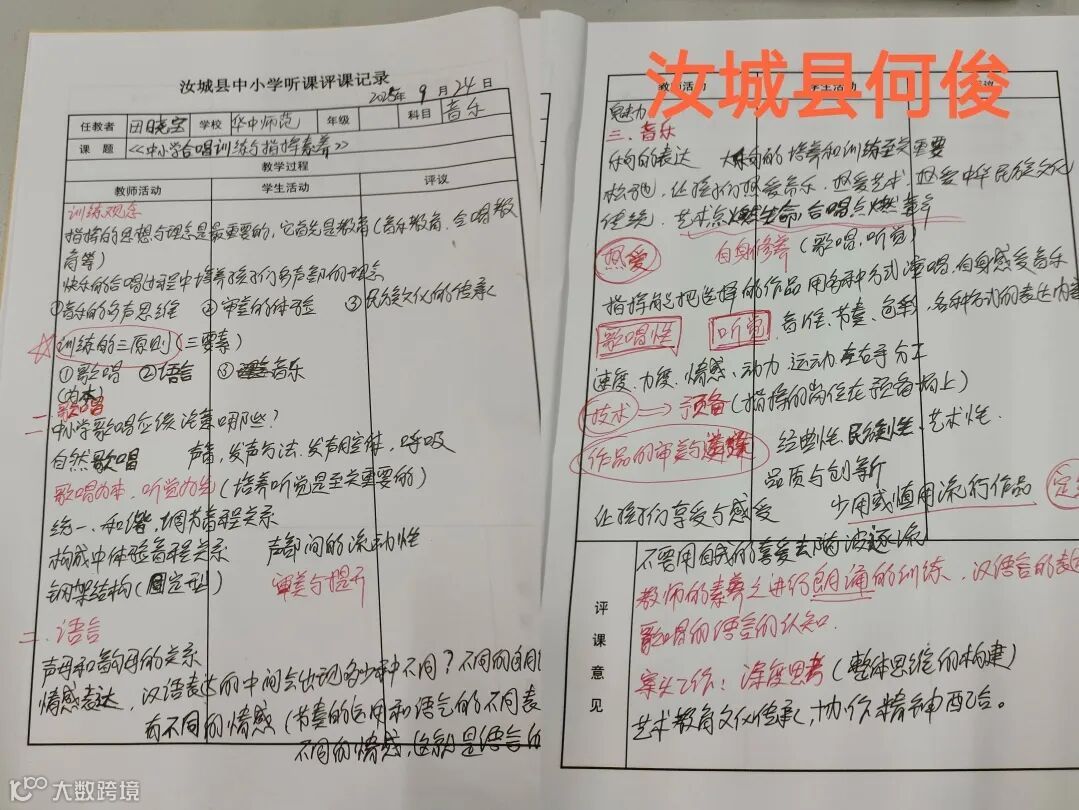 汝城县中小学听课评课记录
2025年 9 月 24 日
任教者 田晓宝 学校 华中师范 年级 科目 音乐
课 题 《中小学合唱训练与指挥素养》
教学过程
教师活动 学生活动 评议
训练观念
指挥的思想与理念是最重要的,它首先是教育(音乐教育、合唱教
育等)
快乐的合唱过程中培养孩子们多声部的理念
①音乐的多声思维 ②审美的体验 ③民族文化的传承
☆训练的三原则(三要素)
①歌唱 ②语言 ③音乐
(为本)
一 歌唱
中小学歌唱应该注意哪些?
自然歌唱 声音,发声方法、发声腔体,呼吸
歌唱为本,听觉为先(培养听觉是至关重要的)
统一、和谐、调节音程关系
构成中体验音程关系 声部间的流动性
钢架结构(固定型) 审美与提升
二、语言
声母和韵母的关系
情感表达,汉语表达的中间会出现 不同?不同的
有不同的情感(节奏的运用和语气的不同表
不同的情感,这就是语言的
汝城县何俊
教师活动 学生活动 评议
魅力
三、音乐
乐句的表达 乐句的培养和训练至关重要
松弛,让孩子们热爱音乐、热爱艺术、热爱中华民族文化
传统,艺术点燃生命,合唱点燃青春
热爱 自身修养(歌唱、听觉)
指挥能把选择的作品用各种方式演唱,自身感受音乐
歌唱性 听觉 音准、节奏、色彩、各种方式的表达内容
速度、力度、情感、动力、运动 左右手分工
技术→预备(指挥的岗位在预备拍上)
作品的审美与选择 经典性、民族性、艺术性
品质与创新
让孩子们享受与感受 少用或慎用流行作品 定
不要用自我的喜爱去随波逐流
评课意见
教师的素养之进行朗诵的训练,汉语言的表
歌唱的语言的认知
案头工作:深度思考(整体思维的构建)
艺术教育文化传承,协作精神配合。
大数跨境